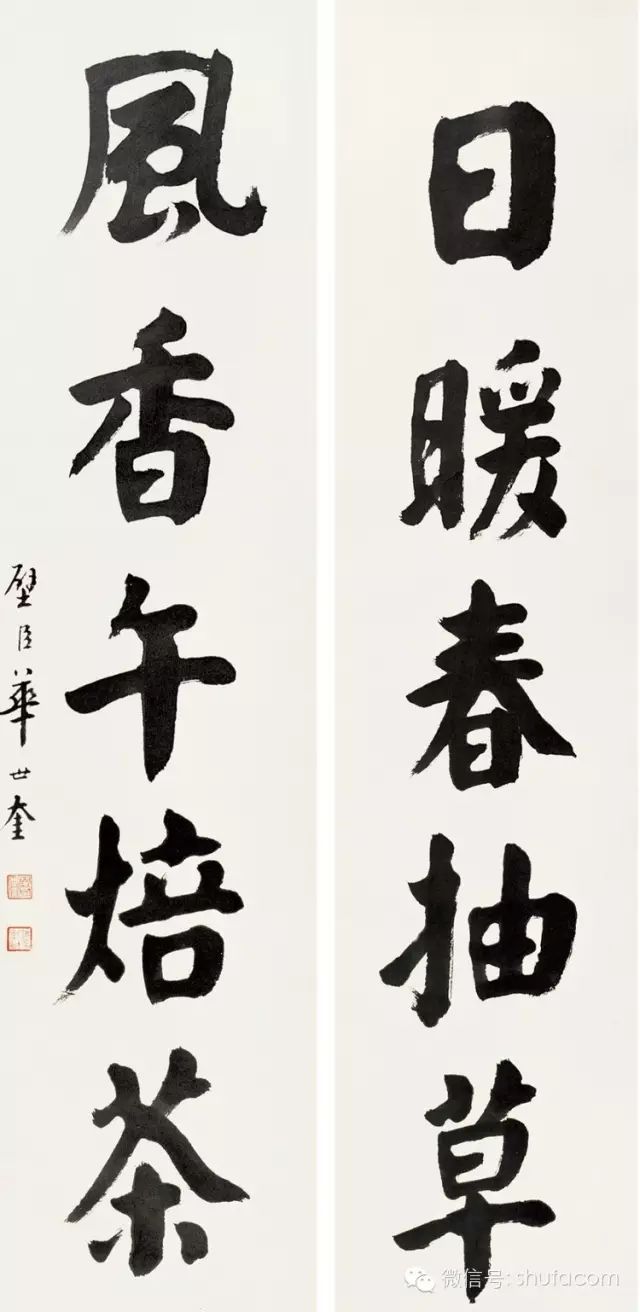 日暖春抽草
風香午焙茶
壁臣華世奎
微信号: shufacom